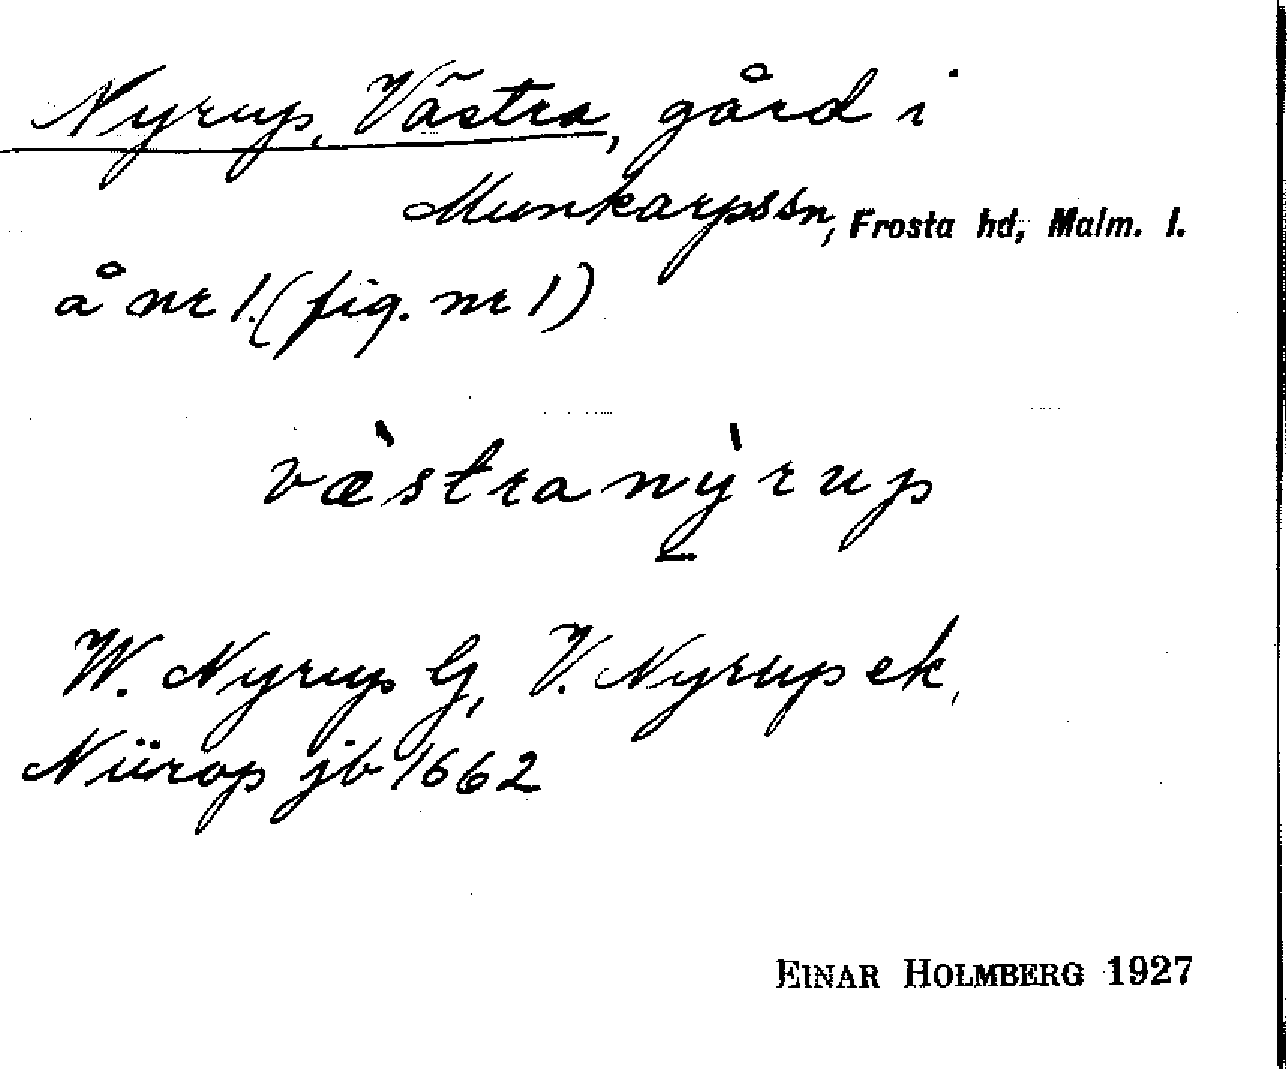 Nyrup, Västra, gård i
Munkarpssn, Frosta hd, Malm. l.
å nr 1. (fig. nr 1)
væ̀stranỳrup
W. Nyrup G, V. Nyrup ek,
Nürop jb 1662
EINAR HOLMBERG 1927